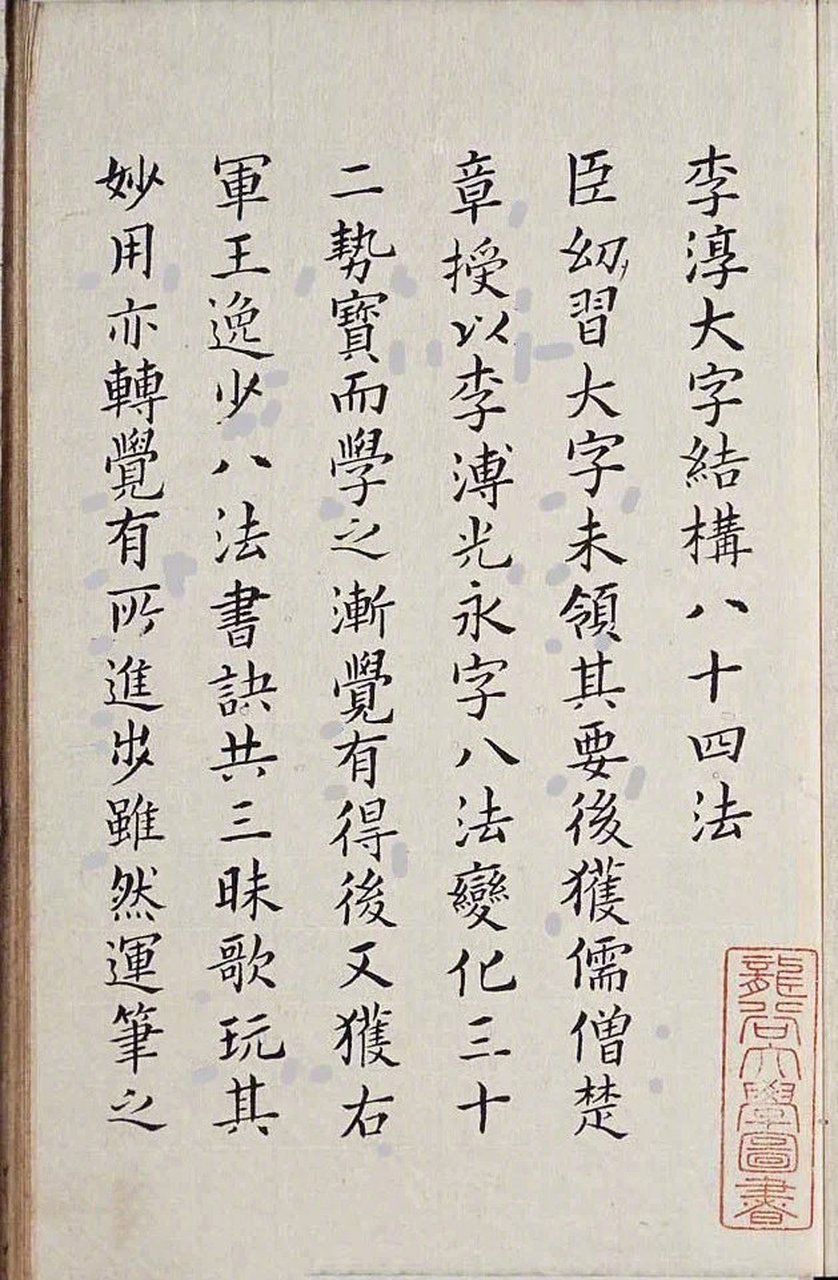 李淳大字結構八十四法
臣幼習大字未領其要後獲儒僧楚
章授以李溥光永字八法變化三十
二勢寶而學之漸覺有得後又獲右
軍王逸少八法書訣共三昧歌玩其
妙用亦轉覺有所進步雖然運筆之
龍谷大學圖書